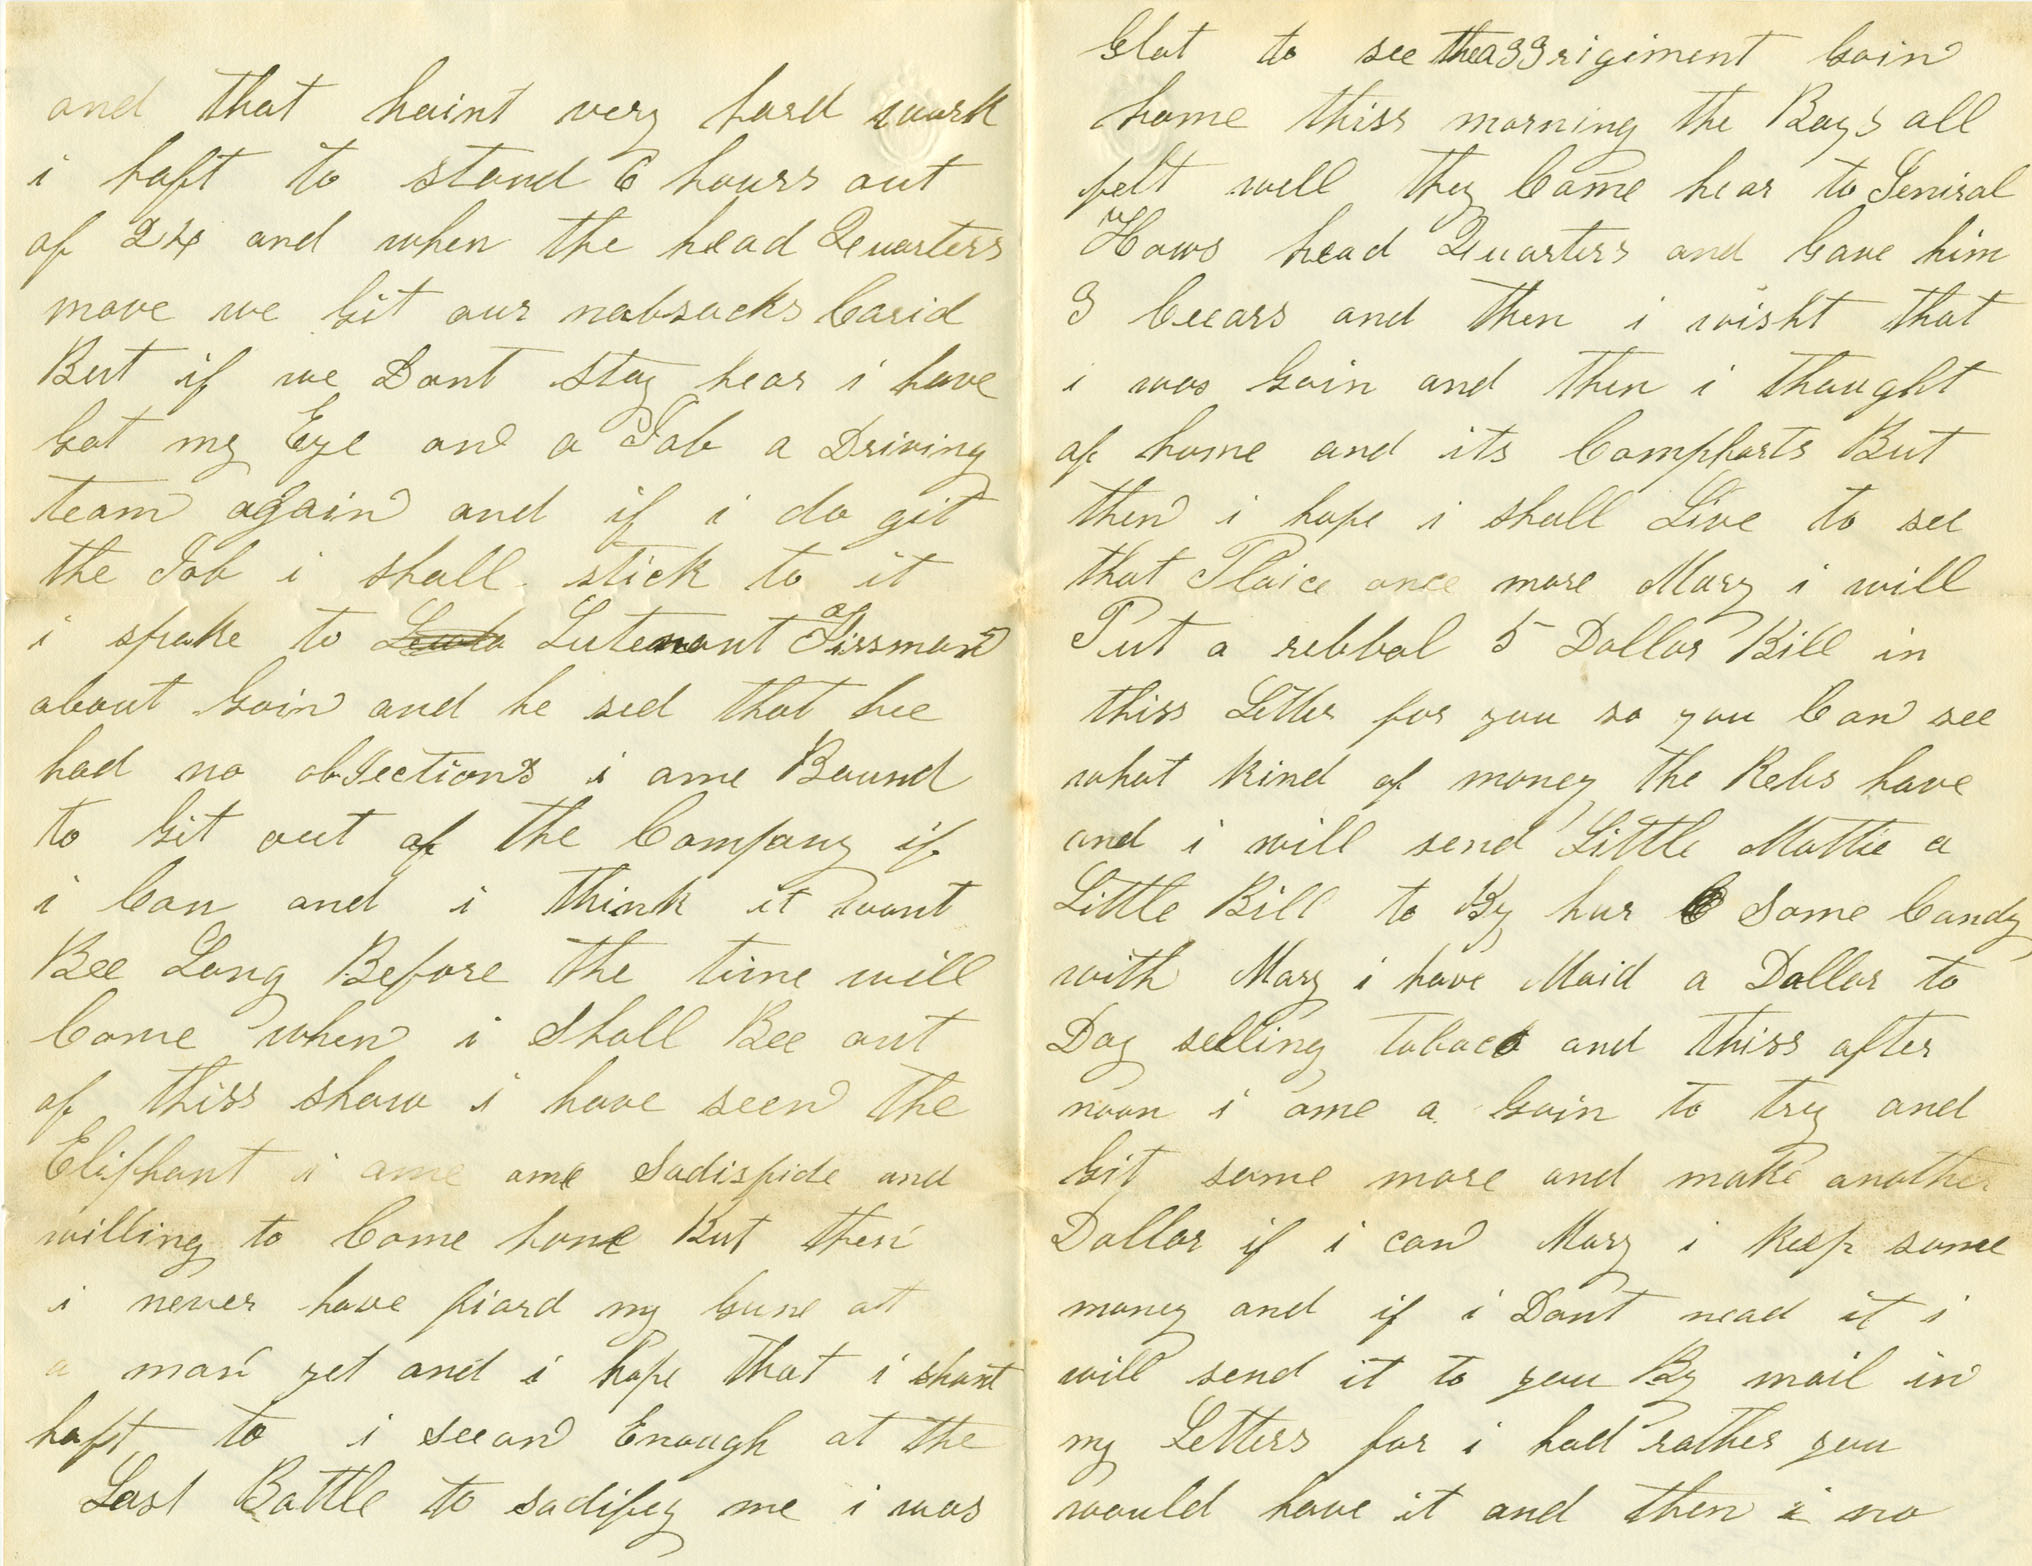 and that haint very hard work
i haft to stand 6 hours out
of 24 and when the head Quarters
move we Git our nabsacks Carid
But if we Dont stay hear i have
Got my Eye and a Job a Driving
team again and if i do git
the Job i shall stick to it
i spoke to Lutenant
about Goin and he sed that hee
had no obJections i ame Bound
to Git out of the Company if
i Can and i think it wont
Bee Long Before the time will
Come when i Shall Bee out
of thiss show i have seen the
Eliphant i ame ame Sadisfide and
willing to Come home But then
i never have fiard my Gune att
a man yet and i hope that i shant
haft to i seean Enough at the
Last Battle to sadifey me i was
Glat to see the 33 rigiment Goin
home thiss morning the Boys all
felt well they Came hear to Geniral
Hows head Quarters and Gave him
3 Ceears and then i wisht that
i was Goin and then i thought
of home and its Compharts But
then i hope i shall Live to see
that Plaice once more Mary i will
Put a rebbal 5 Dollar Bill in
thiss Letter for you so you Can see
what kind of money the Rebs have
and i will send Little Mattie a
Little Bill to By hur Some Candy
with Mary i have Maid a Dollar to
Day selling tobaco and thiss after
noon i ame a Goin to try and
Git some more and make another
Dollar if i can Mary i keep some
money and if i Dont nead it i
will send it to you By mail in
my Letters for i had rather you
would have it and then i no